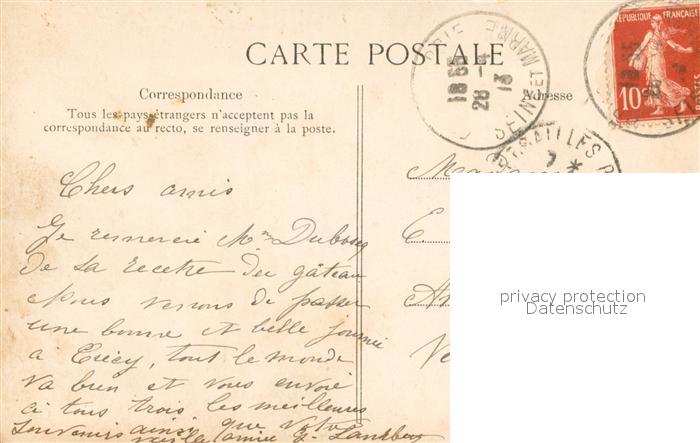 CARTE POSTALE
Correspondance
Tous les pays étrangers n'acceptent pas la
correspondance au recto, se renseigner à la poste.
Adresse
RÉPUBLIQUE FRANÇAISE
10
18 55
28 - 4
13
SEINE ET MARNE
Chers amis
Je remercie Mme Dubosq
de sa recette du gâteau
Nous venons de passer
une bonne et belle journée
à Crécy, tout le monde
va bien et vous envoie
à tous trois les meilleures
souvenirs ainsi que votre
vieille amie
privacy protection
Datenschutz